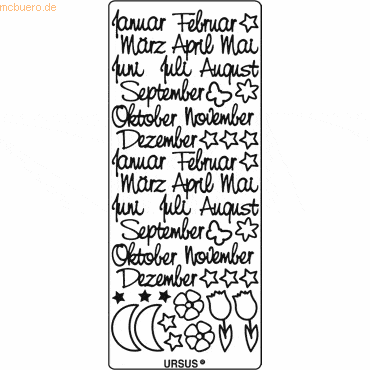 mcbuero.de
Januar Februar
März April Mai
Juni Juli August
September
Oktober November
Dezember
Januar Februar
März April Mai
Juni Juli August
September
Oktober November
Dezember
URSUS®